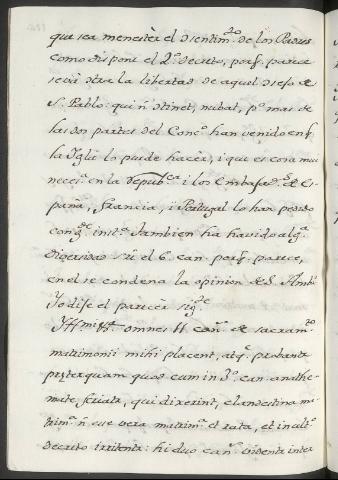 que sea menestèr el dsentim.to de los Padres
como dispone el 2.º decreto, porq. parece
se va dtra la libertad de aquel dseso de
S. Pablo: qui ñ dtinet, nubat, pº mas de
las dos partes del Conc.º han venido en q.
la Iglª lo puede hacèr, i que es cosa mui
neces.ª en la Repub.ca i los Embaxad.s de Es-
paña, Francia, i Portugal lo han pedido
con g.de inst.ª Tambien ha havido alg.ª
diversidad sre el 6. can. porq. parece,
en el se condena la opinion de S. Amb.
Yo dise el parecèr sig.te
omnes can. de sacram.to
matrimonii mihi placent, atq. probantr
prȩterquam quod cum in 3.º can. anathe-
mate feriatr, qui dixerint, clandestina ma-
trim.ª ñ ēe vera matrim.ª et rata, et in alt.º
decreto irritentr: hi duo can.s videntr inter